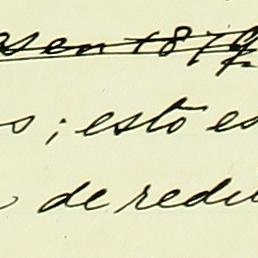 en 1879
; esto es
de redu